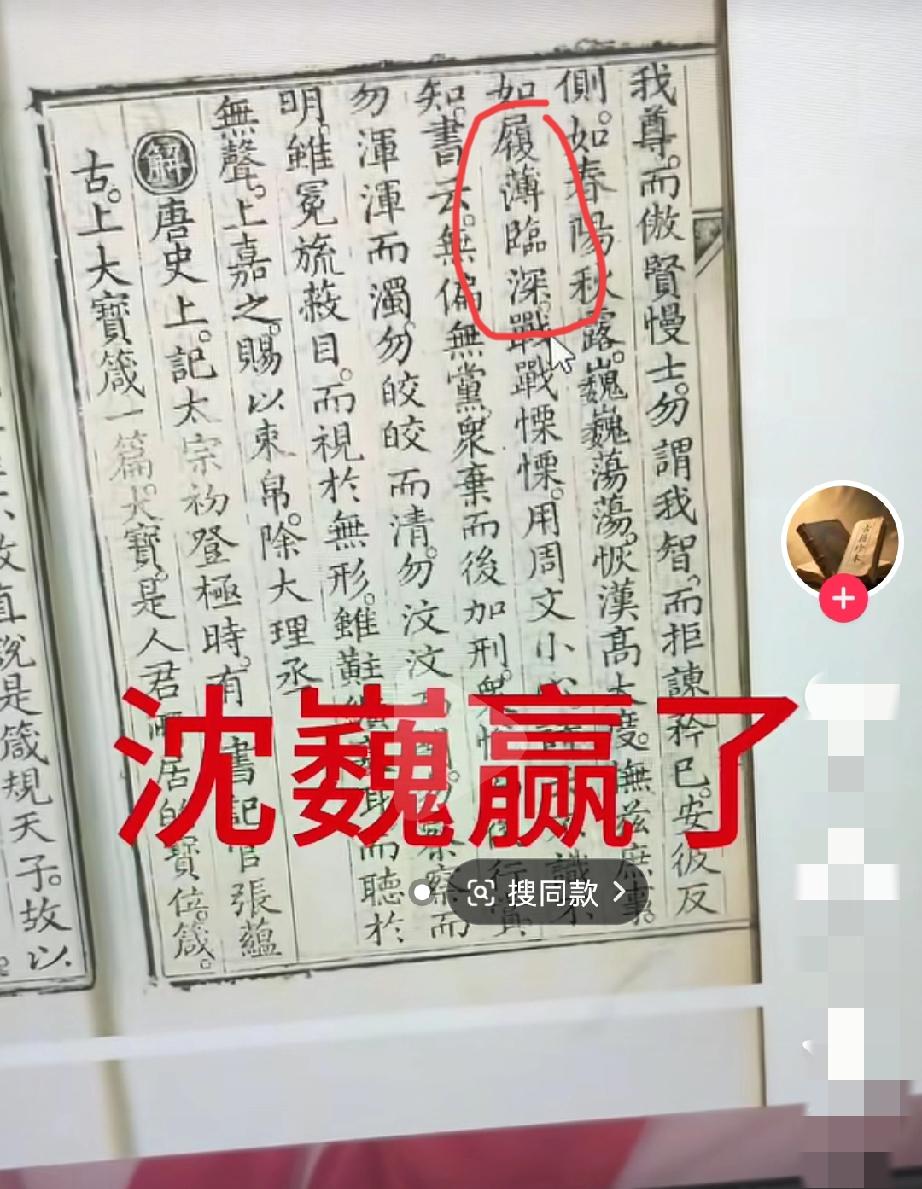 我尊。而傲賢慢士。勿謂我智。而拒諫矜已。安彼反
側。如春陽秋露。巍巍蕩蕩。恢漢高大度。撫茲庶事。
如履薄臨深。戰戰慄慄。用周文小
知。書云。無偏無黨。衆棄而後加刑。衆
勿渾渾而濁。勿皎皎而清。勿汶汶
察察而
明。雖冕旒蔽目。而視於無形。雖黈
而聽於
無聲。上嘉之。賜以束帛。除大理丞
解 唐史上。記太宗初登極時。有
書記官張蘊
古。上大寶箴一篇。大寶。是人君所居的寶位。箴。
直說是箴規天子。故以
沈巍赢了
搜同款